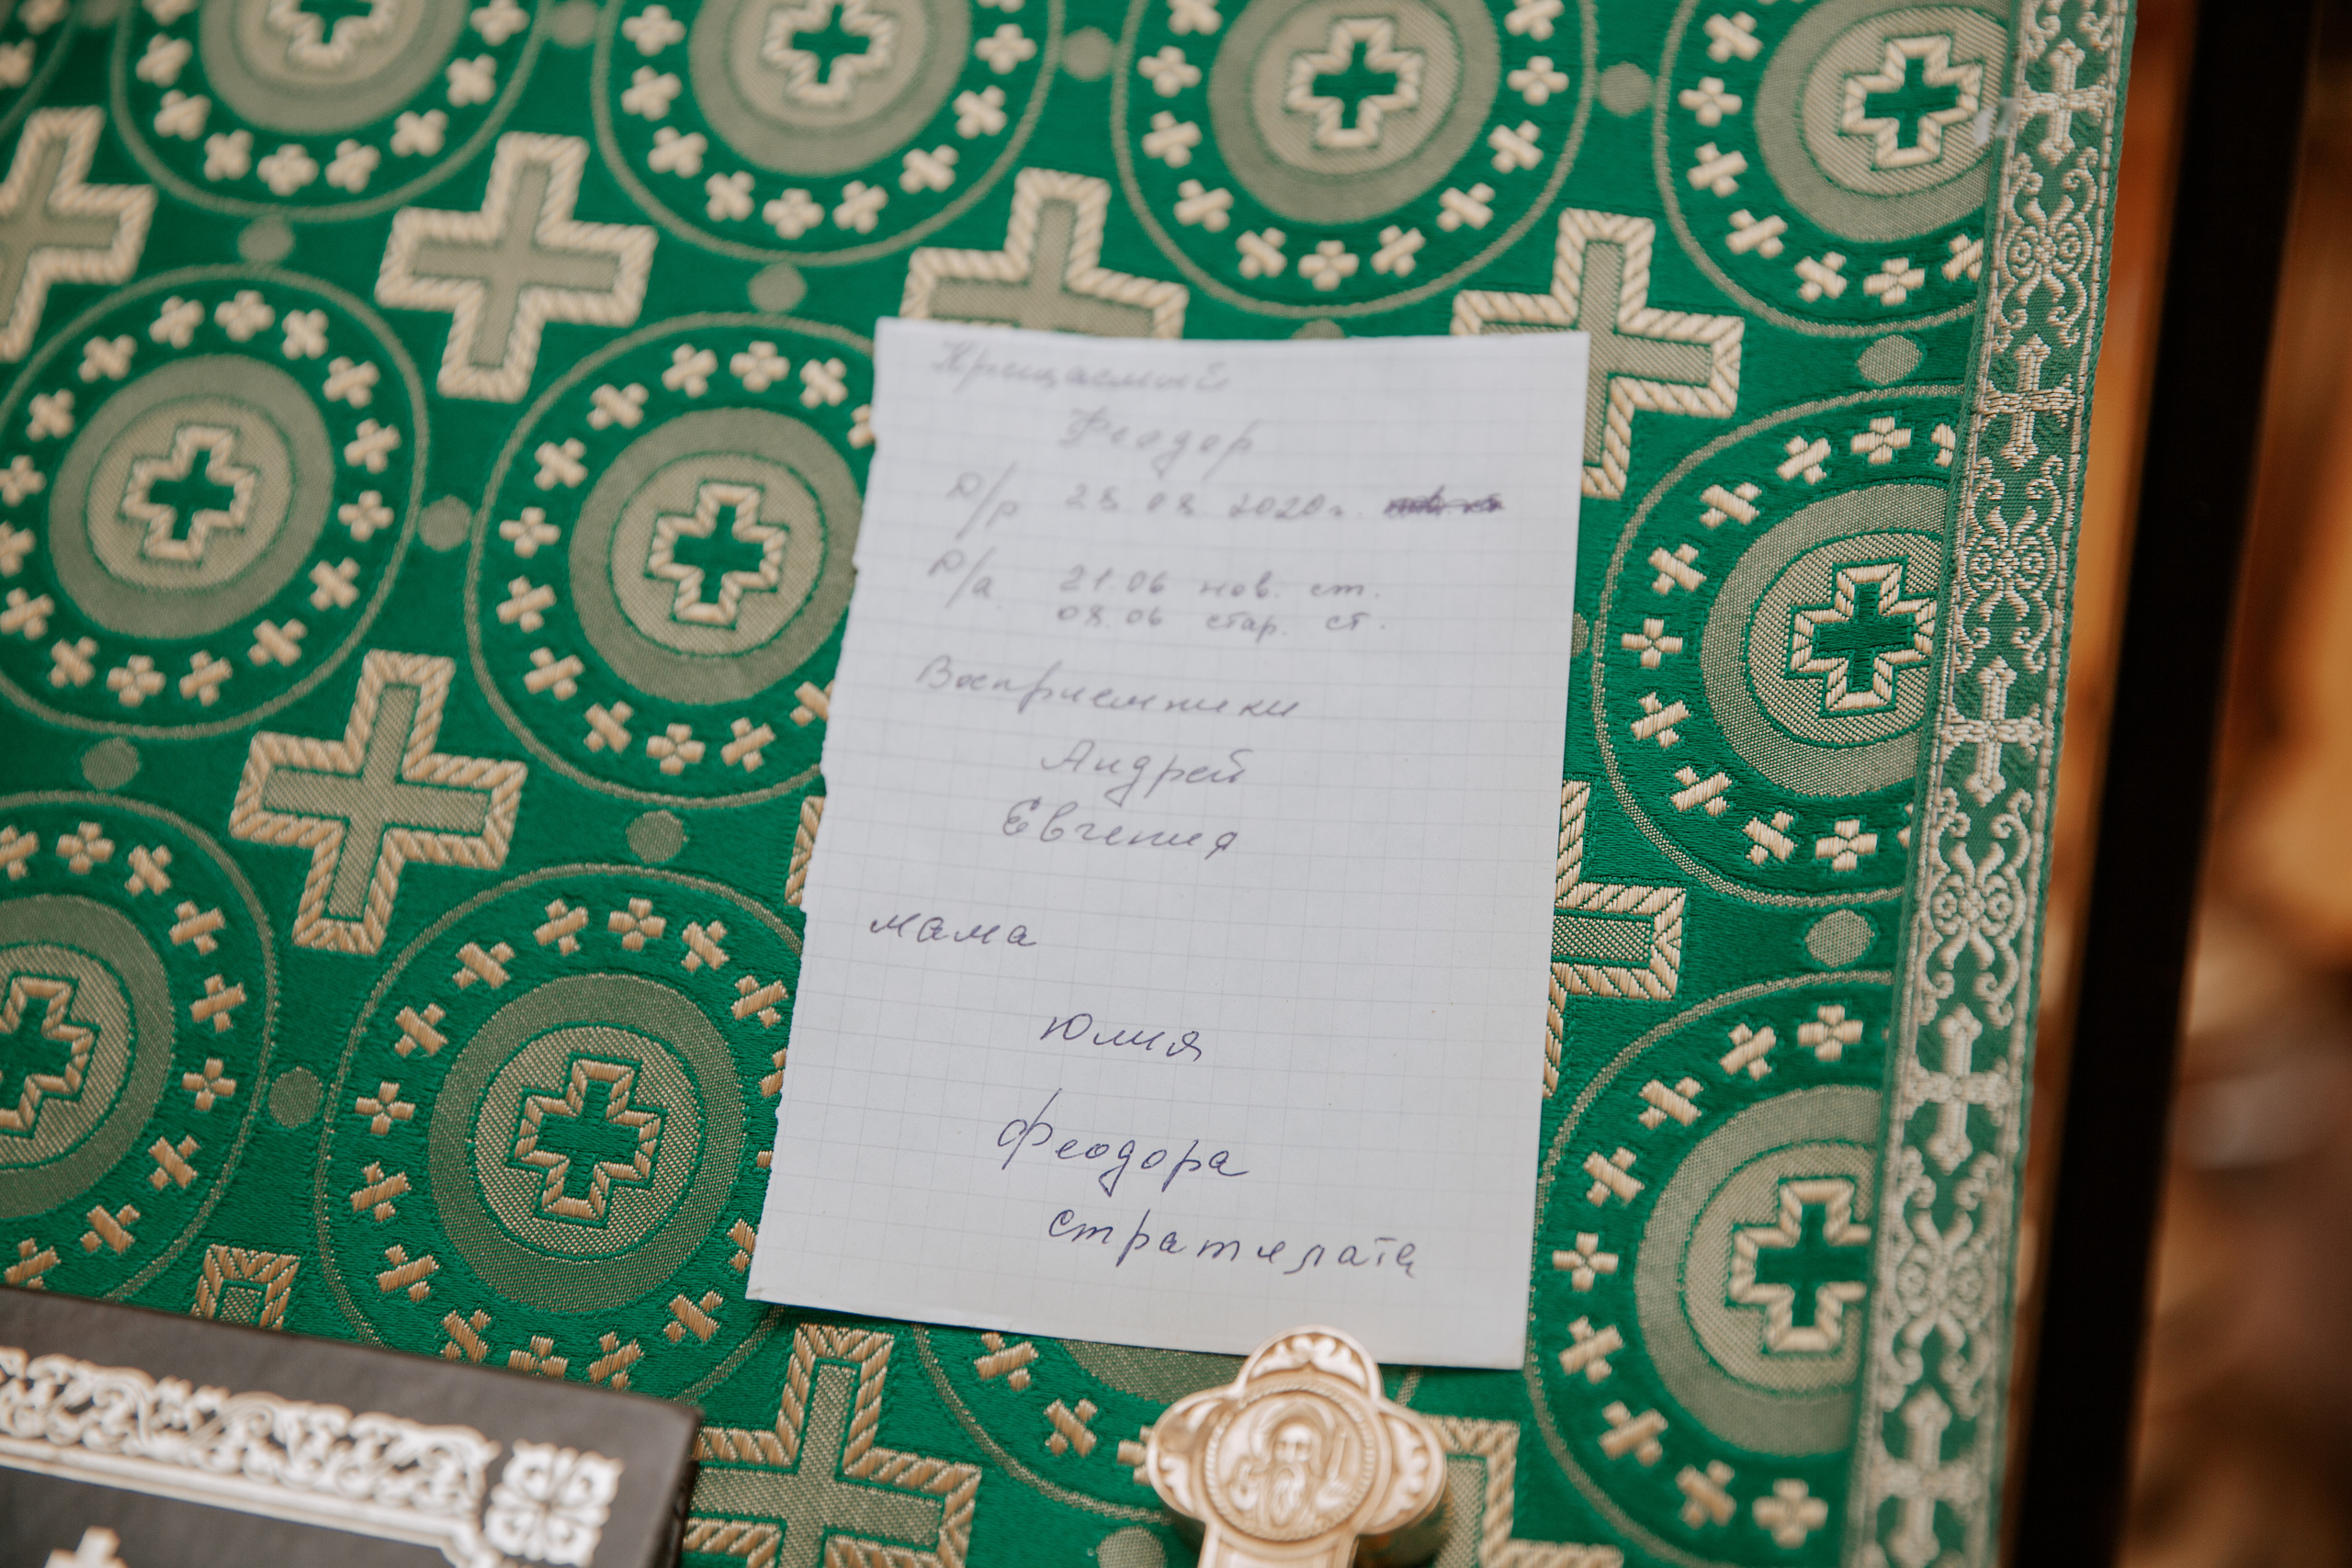 Крещаемый
Феодор
Д/р 28.08.2020г.
Д/а 21.06 нов. ст.
08.06 стар. ст.
Восприемники
Андрей
Евгения
мама
Юлия
Феодора
стратилата